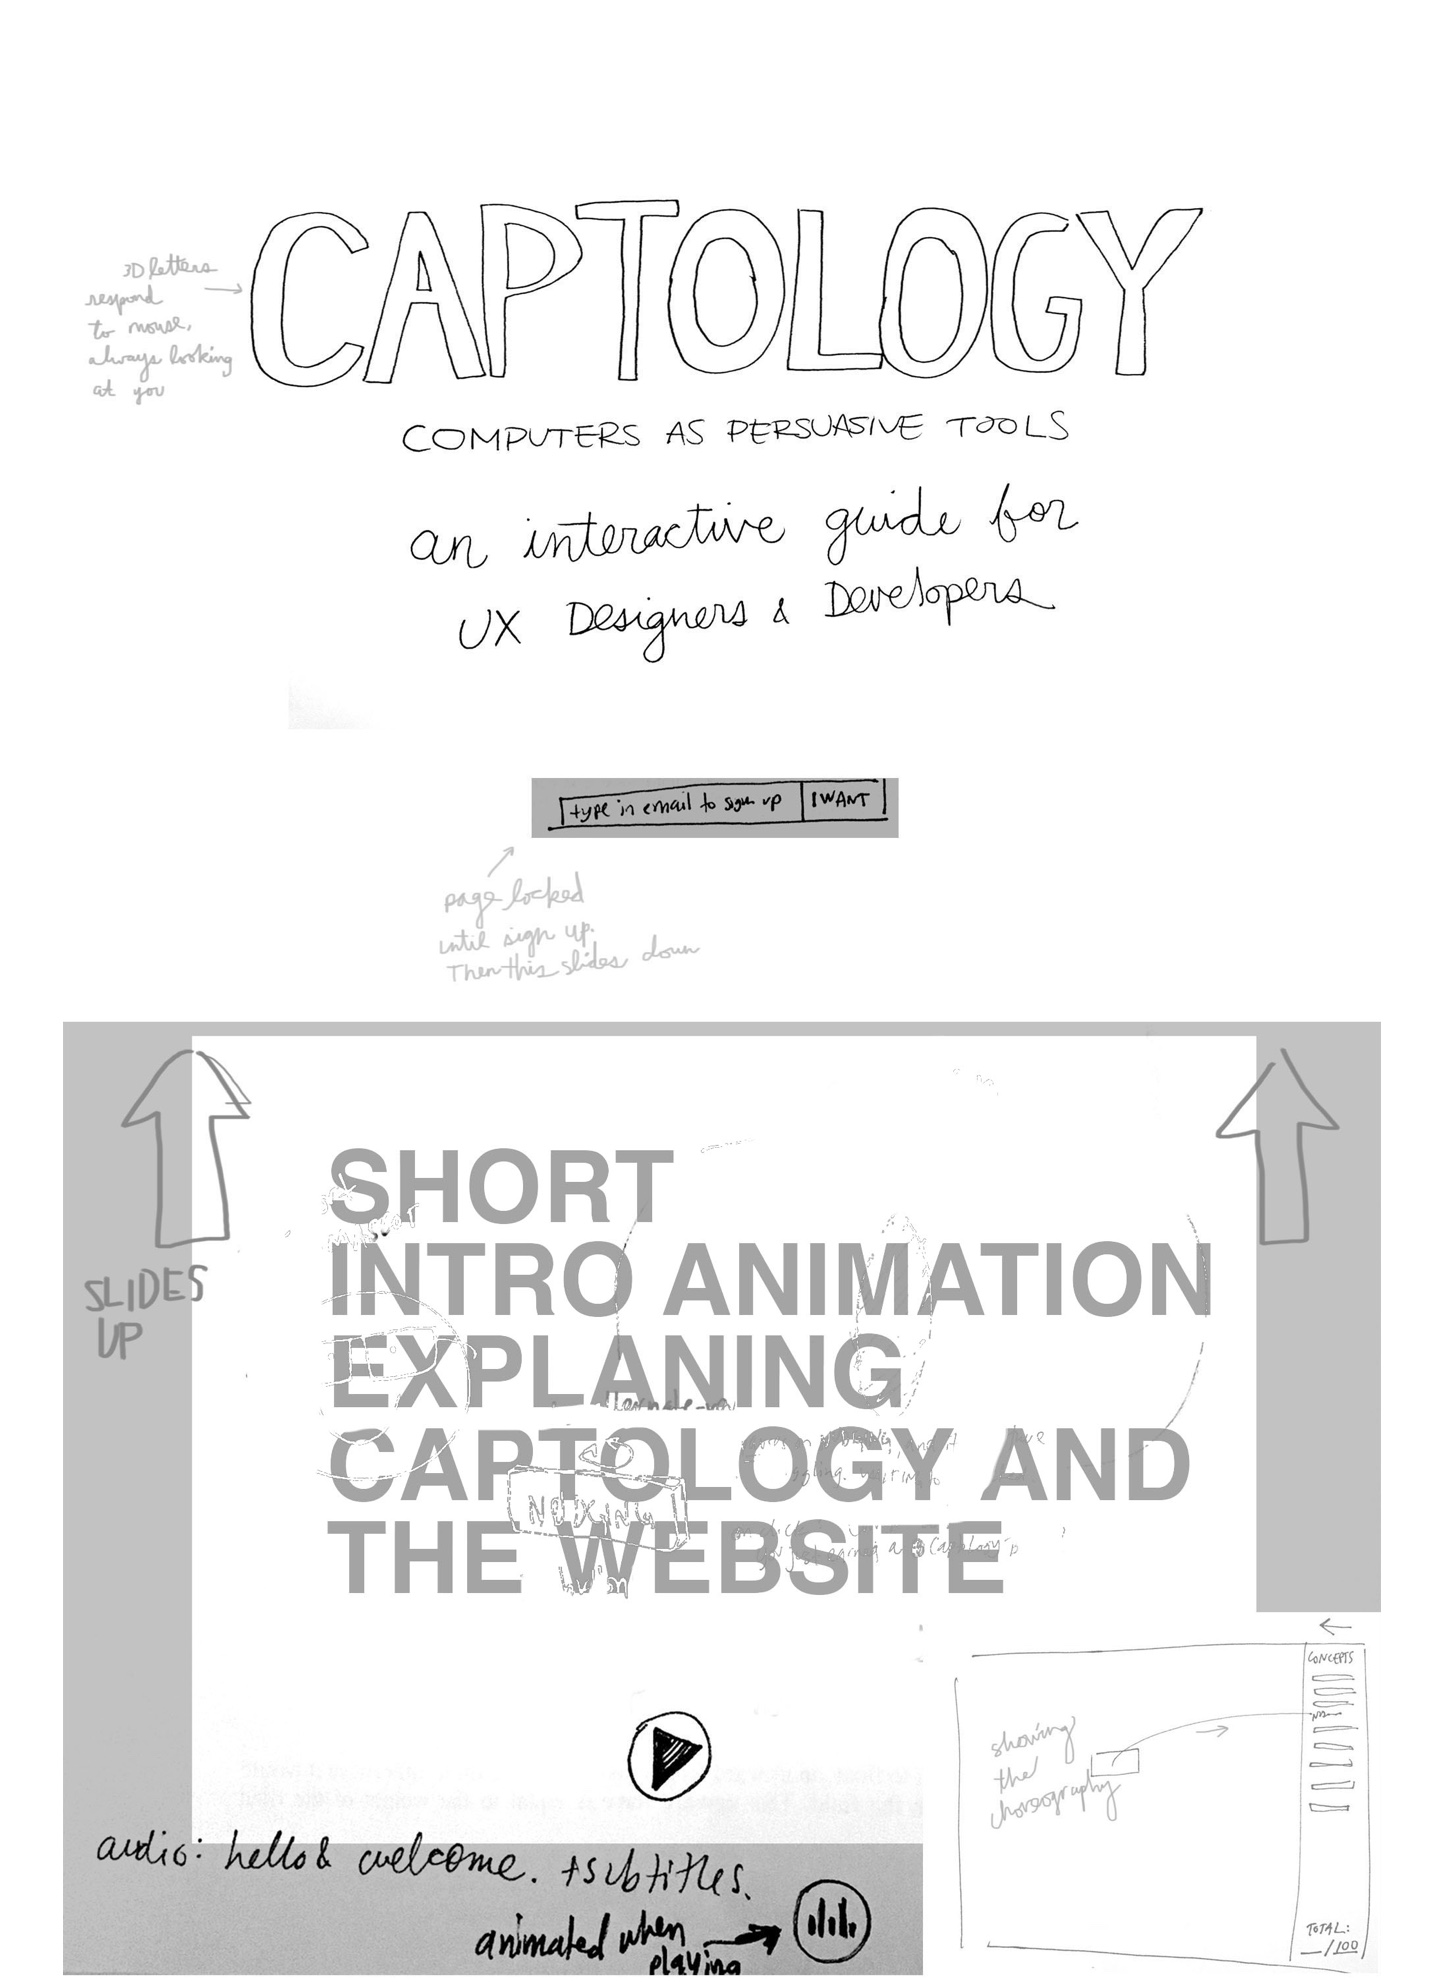 CAPTOLOGY
3D letters
respond
to mouse,
always looking
at you
COMPUTERS AS PERSUASIVE TOOLS
an interactive guide for
UX Designers & Developers
type in email to sign up
I WANT
page locked
until sign up.
Then this slides down
SLIDES
UP
SHORT
INTRO ANIMATION
EXPLANING
CAPTOLOGY AND
THE WEBSITE
NUDGING
audio: hello & welcome. + subtitles.
animated when
playing
showing
the
choreography
CONCEPTS
TOTAL:
/100